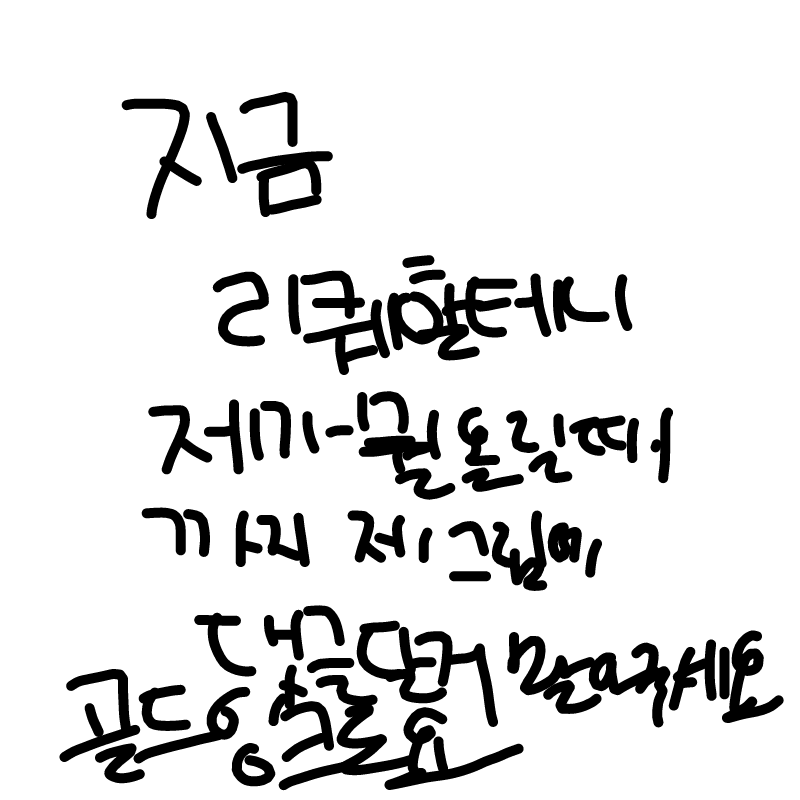 지금
리퀘할테니
제가 뭘올릴때
까지 제그림에
댓글단거 말아주세요
골드등록요